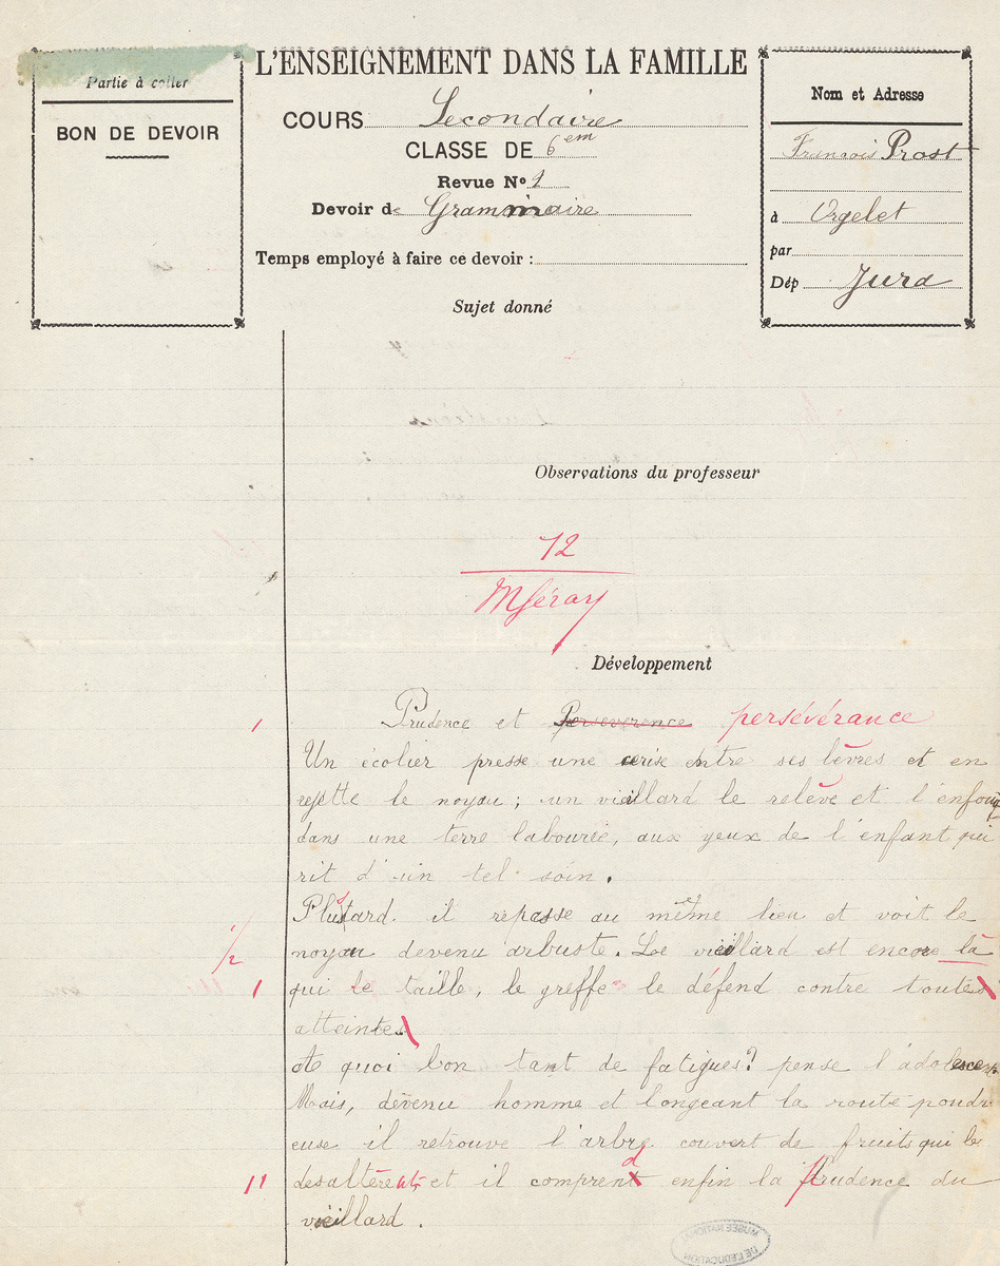 Partie à coller
BON DE DEVOIR
L'ENSEIGNEMENT DANS LA FAMILLE
COURS Secondaire
CLASSE DE 6em
Revue N° 1
Devoir de Grammaire
Temps employé à faire ce devoir :
Sujet donné
Nom et Adresse
Francois Prost
à Orgelet
par
Dép Jura
Observations du professeur
12
MSéray
Développement
1 Prudence et Perseverence persévérance
Un écolier presse une cerise entre ses lèvres et en
rejette le noyau ; un vieillard le relève et l'enfouit
dans une terre labourée, aux yeux de l'enfant qui
rit d'un tel soin.
Plustard il repasse au même lieu et voit le
1/2 noyau devenu arbuste. Le vieillard est encore là
1 qui le taille, le greffe le défend contre toutes
atteintes
A quoi bon tant de fatigues? pense l'adolescent
Mais, devenu homme et longeant la route poudr
euse il retrouve l'arbre couvert de fruits qui le
11 desaltèrent, et il comprend enfin la Prudence du
vieillard.
MUSEE NATIONAL
DE L'EDUCATION